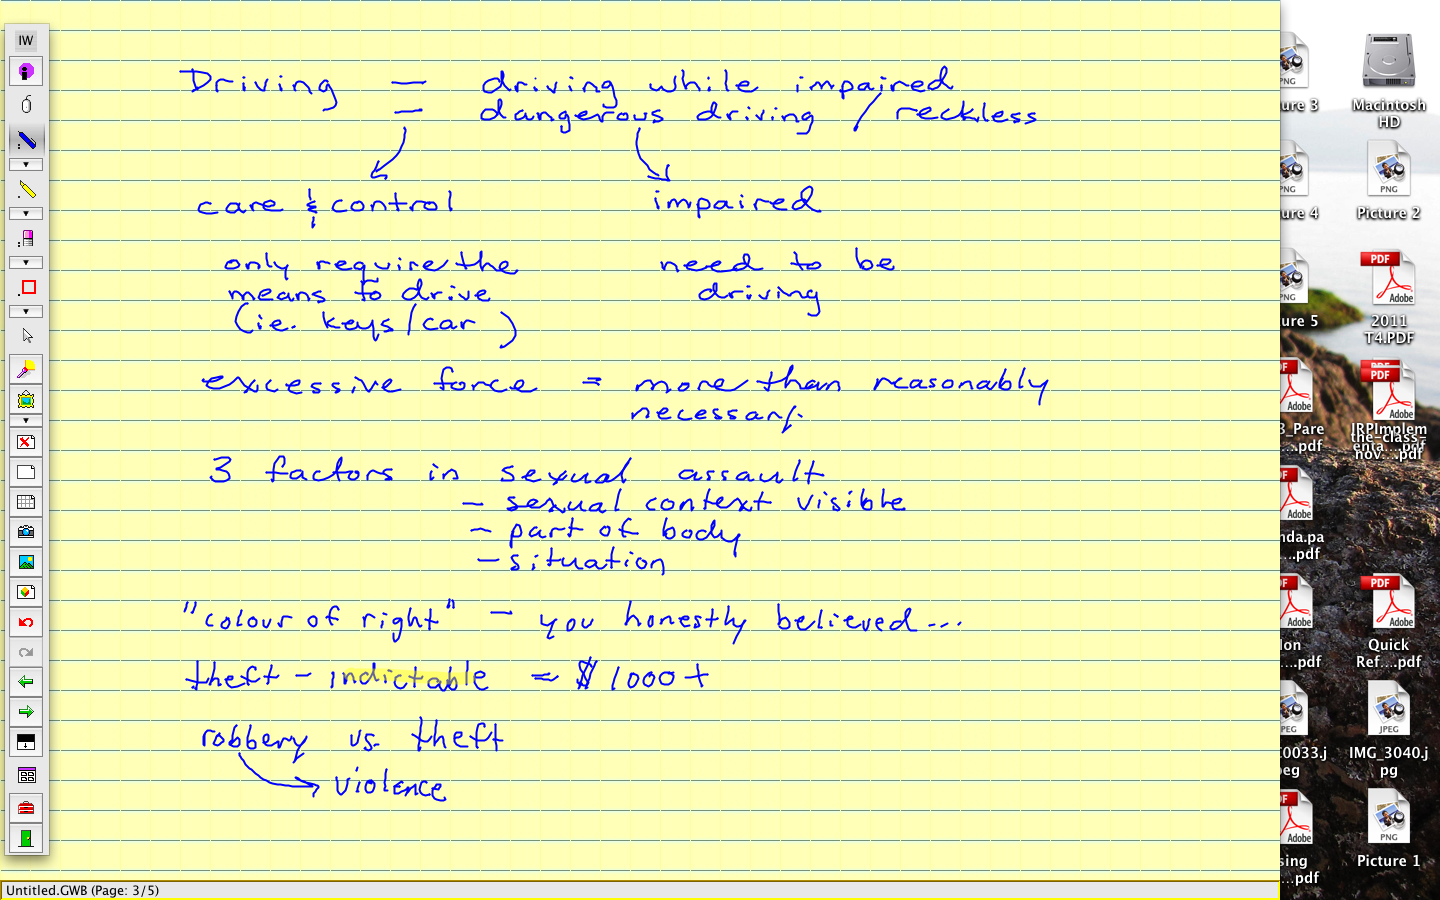 IW
Driving — driving while impaired
— dangerous driving / reckless
care & control impaired
only require the need to be
means to drive driving
(ie. keys/car )
excessive force = more than reasonably
necessary.
3 factors in sexual assault
- sexual context visible
- part of body
- situation
"colour of right" - you honestly believed...
theft - indictable = $1000+
robbery vs. theft
violence
Untitled.GWB (Page: 3/5)
ure 3
Macintosh
HD
PNG
ure 4
PNG
Picture 2
PNG
ure 5
PDF
Adobe
2011
T4.PDF
Adobe
3_Pare
...pdf
PDF
Adobe
Adobe
nda.pa
...pdf
Adobe
ion
...pdf
PDF
Adobe
Quick
Ref....pdf
PEG
K0033.j
peg
JPEG
IMG_3040.j
pg
Adobe
sing
...pdf
PNG
Picture 1